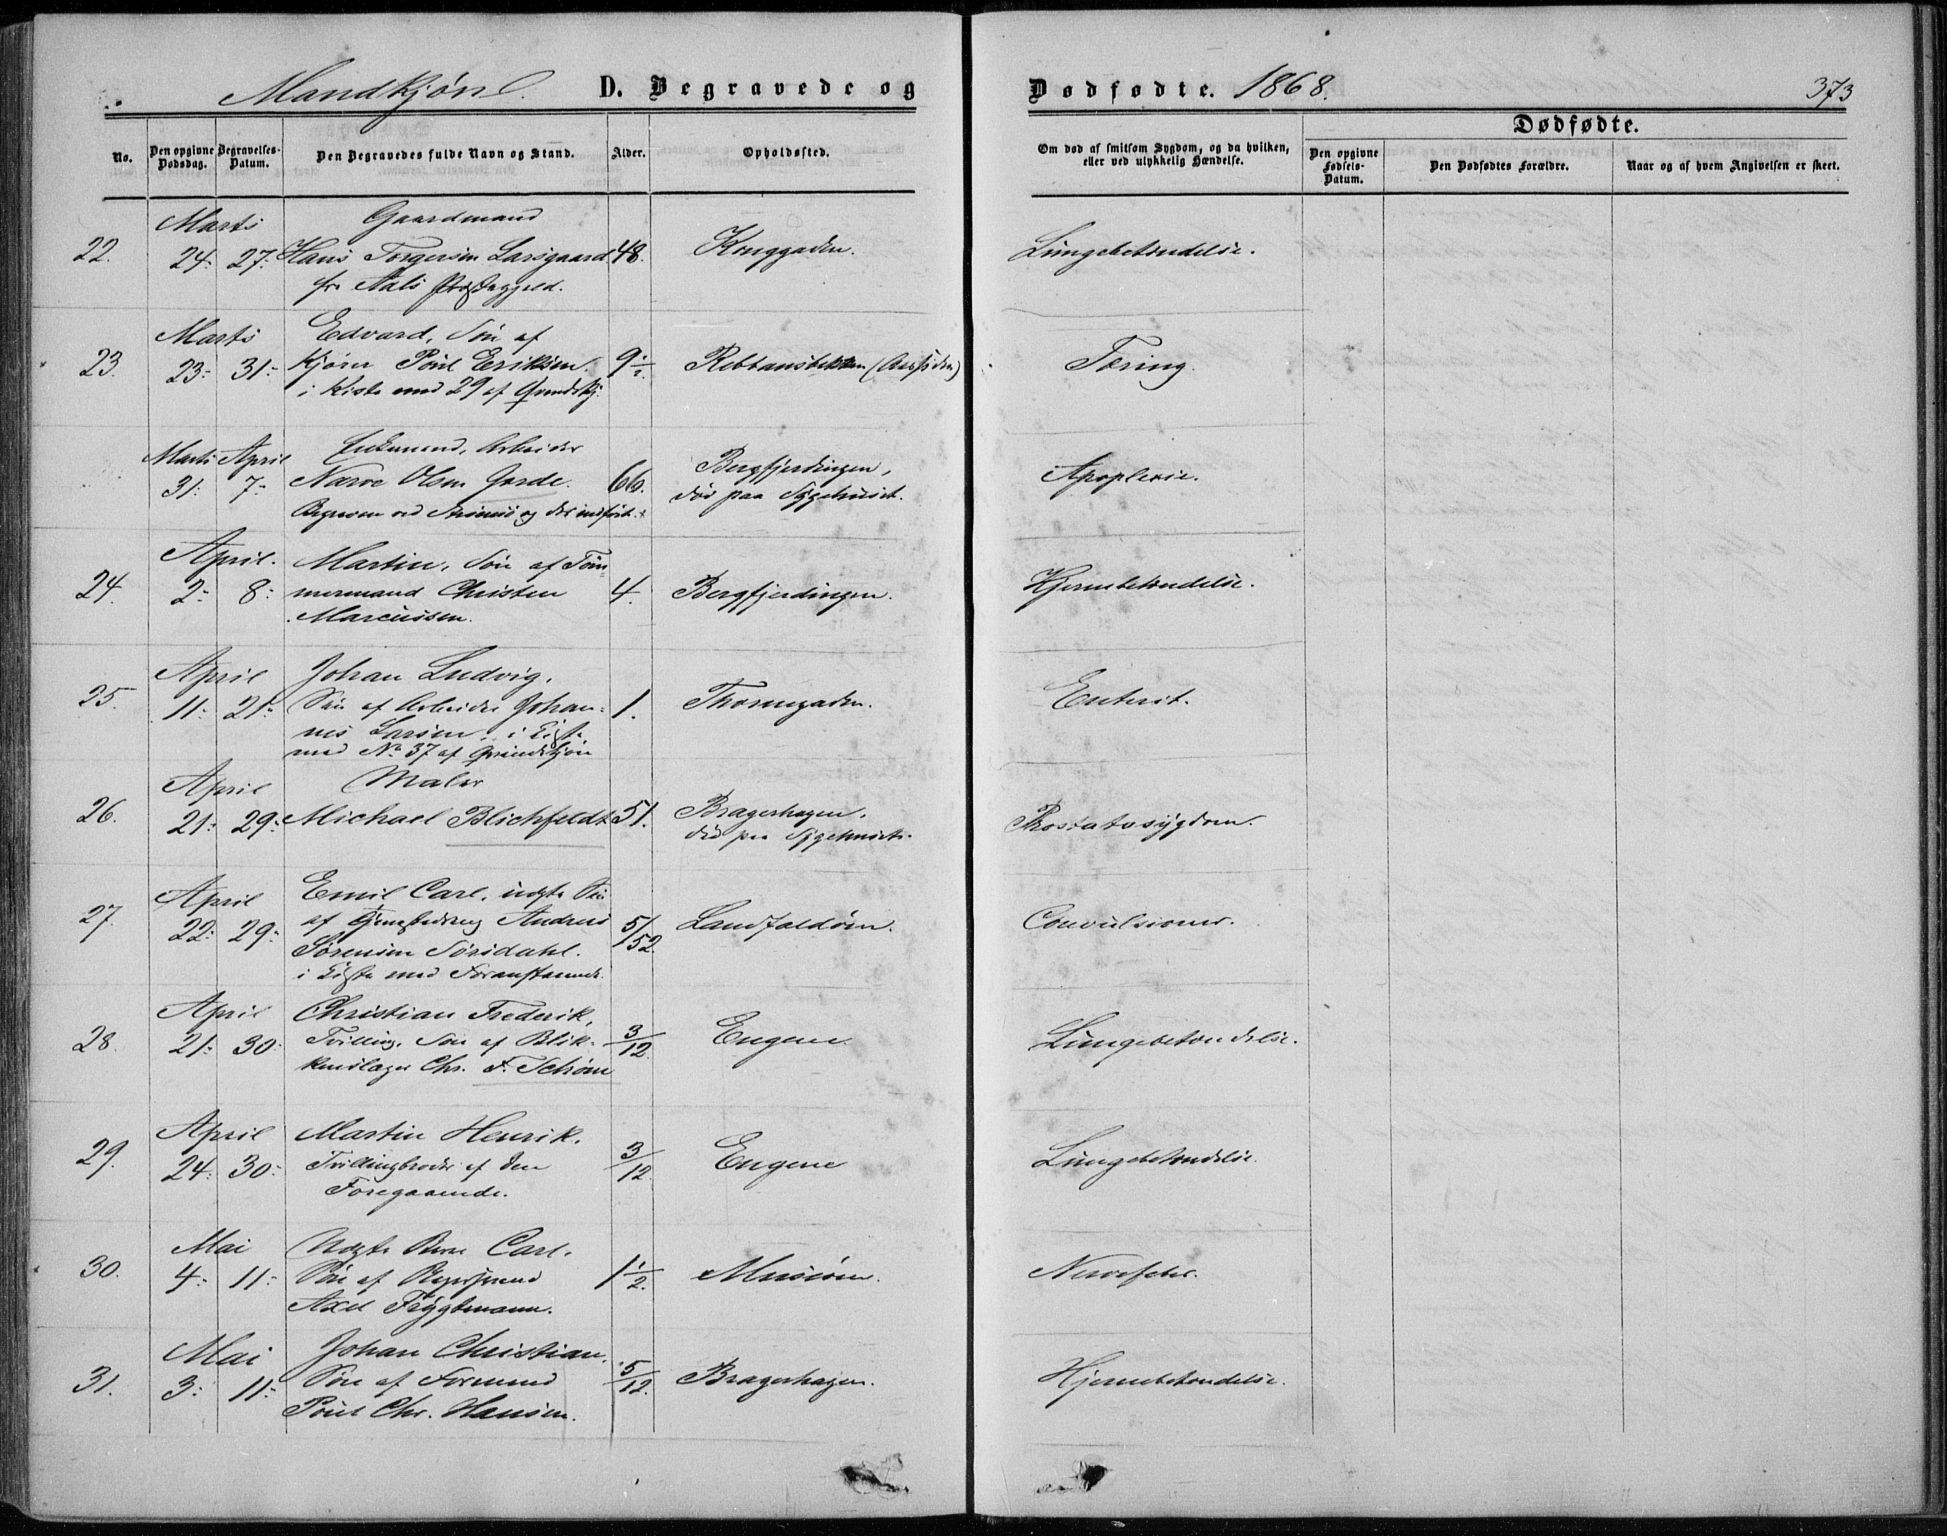 Mandkjøn. D. Begravede og
Dødfødte. 1868. 373
No. Den opgivne Dødsdag. Begravelses-Datum. Den Begravedes fulde Navn og Stand. Alder. Opholdssted.
Om død af smitsom Sygdom, og da hvilken, eller ved ulykkelig Hændelse.
Dødfødte.
Den opgivne Fødsels-Datum. Den Dødfødtes Forældre. Naar og af hvem Angivelsen er skeet.
Marts Gaardmand
22. 24. 27. Hans Torgersen Larsgaard 48. Konggaden. Lungebetændelse.
fr Aals Præstegjeld.
Marts Edvard, Søn af
23. 23. 31. Kjører Poul Eriksen. 9½. Rebbansbakken Tæring.
i Kiste med 29 af
Marts April Enkemand, Arbeider
31. 7. Narve Olsen Gorde. 66. Bergfjerdingen, Apoplexie.
død paa Sygehuset.
April. Martin, Søn af Töm-
24. 2. 8. mermand Christen 4. Bergfjerdingen. Hjernebetændelse.
Marcussen.
April Johan Ludvig,
25. 11. 21. Søn af Arbeider Johan- 1. Thornegaden. Enterit.
nes Larsen, i Kiste
med No 37 af Qvindekjøn
April Maler
26. 21. 29. Michael Blichfeldt 51. Bragerhagen, Prostatasygdom.
død paa Sygehuset.
April Emil Carl, uægte Søn
27. 22. 29. af Andreas 5/52. Landfaldøen. Convulsioner.
Sørensen Sørsdahl.
i Kiste med Foranstaaende.
April Christian Frederik,
28. 21. 30. Tvilling, Søn af Blik- 3/12. Engene Lungebetændelse.
kenslager Chr. F. Schrøm
April Martin Henrik.
29. 24. 30. Tvillingbroder af den 3/12. Engene Lungebetændelse.
Foregaaende.
Mai Uægte Barn Carl.
30. 4. 11. Søn af 1½. Musiøen. Nervefeber.
Axel Frygtmann.
Mai Johan Christian,
31. 3. 11. Søn af Formand 5/12. Bragerhagen. Hjernebetændelse.
Poul Chr. Hansen.